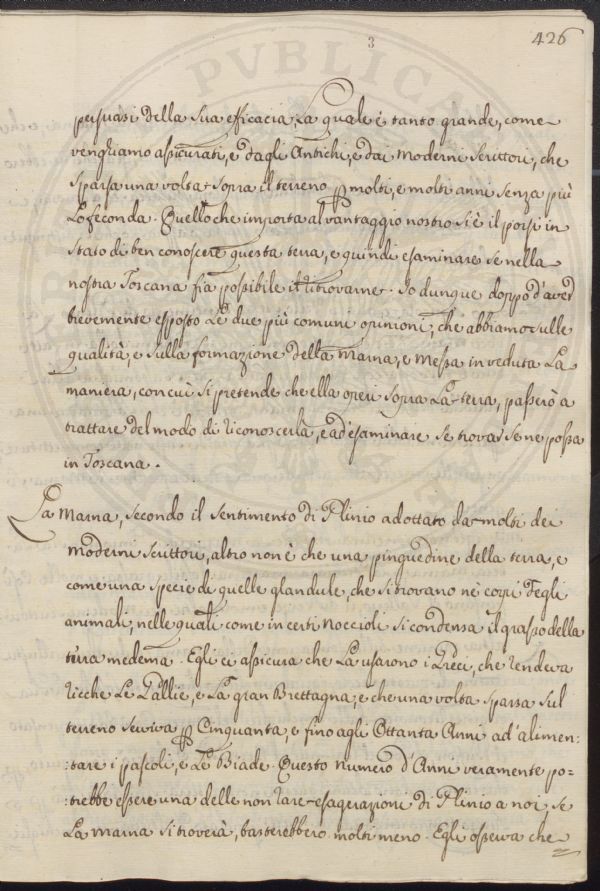 3
426
persuasi della sua efficacia, La quale è tanto grande, come
venghiamo assicurati, e dagli Antichi, e dai Moderni Scrittori, che
sparsa una volta sopra il terreno p molti, e molti anni senza più
Lo feconda. Quello che importa al vantaggio nostro si è il porsi in
stato di ben conoscere questa terra, e quindi esaminare se nella
nostra Toscana fia possibile il ritrovarne. Io dunque doppo d'aver
brevemente esposto Le due più comuni opinioni, che abbiamo sulle
qualità, e sulla formazione della Marna, e messa in veduta La
maniera, con cui si pretende che ella operi sopra La terra, passerò a
trattare del modo di riconoscerla, e ad esaminare se trovar se ne possa
in Toscana.
La Marna, secondo il sentimento di Plinio adottato da molti dei
Moderni Scrittori, altro non è che una pinguedine della terra, e
come una specie di quelle glandule, che si trovano ne' corpi degli
animali, nelle quali come in certi noccioli si condensa il grasso della
terra medema. Egli ci assicura che La usarono i Greci, che rendeva
ricche Le Gallie, e La gran Brettagna, e che una volta sparsa sul
terreno serviva p Cinquanta, e fino agli Ottanta Anni ad' alimen=
=tare i pascoli, e Le Biade. Questo numero d'Anni veramente po=
=trebbe essere una delle non rare esagerazioni di Plinio a noi, se
La marna si troverà, basterebbero molti meno. Egli osserva che
PVBLICA